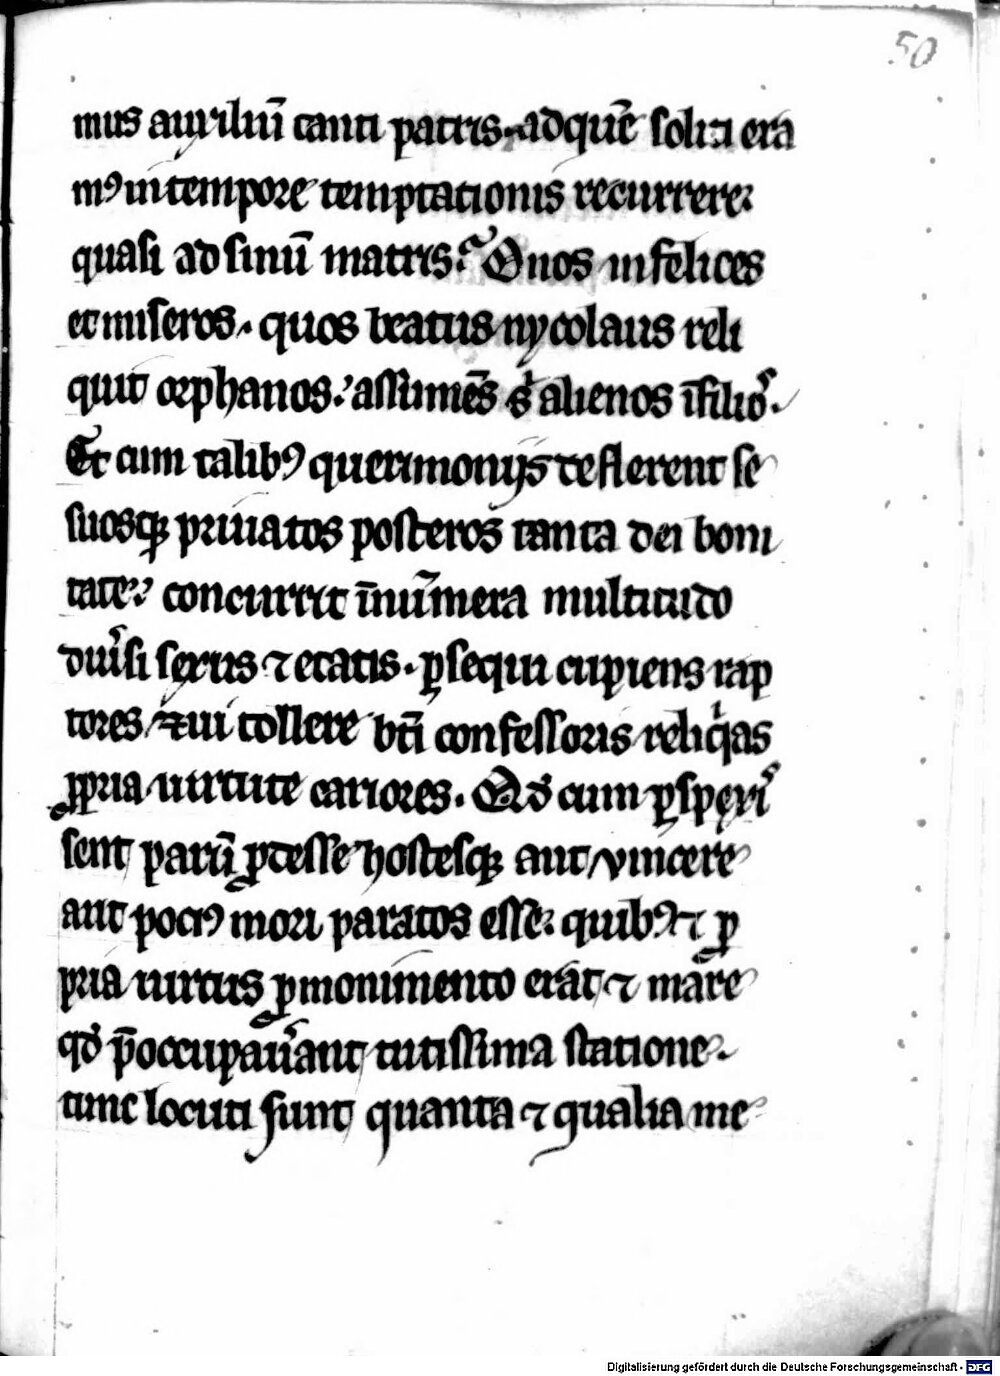 50
mus auxiliū tanti patris. ad quē soliti era
mꝰ in tempore temptationis recurrere
quasi ad sinū matris. Quos infelices
et miseros. quos beatus nycolaus reli
quit orphanos. assumēs alienos ī filios.
Et cum talibꝰ querimonijs deflerent se
suosqꝫ priuatos posteros tanta dei boni
tate. concurrit īnūmera multitudo
diuͥsi sexus ⁊ etatis. ꝑsequi cupiens rap
tores ⁊ ui tollere bti̅ confessoris reliqͥas
ꝓpria uirtute cariores. Qd̓ cum
sent parū ꝓdesse hostesqꝫ aut vincere
aut pociꝰ mori paratos esse. quibꝰ ⁊ ꝓ
pria uirtus ꝓ monimento erat ⁊ mare
qd̓ p̄occupauͥant tutissima statione.
tunc locuti sunt quanta ⁊ qualia me
Digitalisierung gefördert durch die Deutsche Forschungsgemeinschaft - DFG